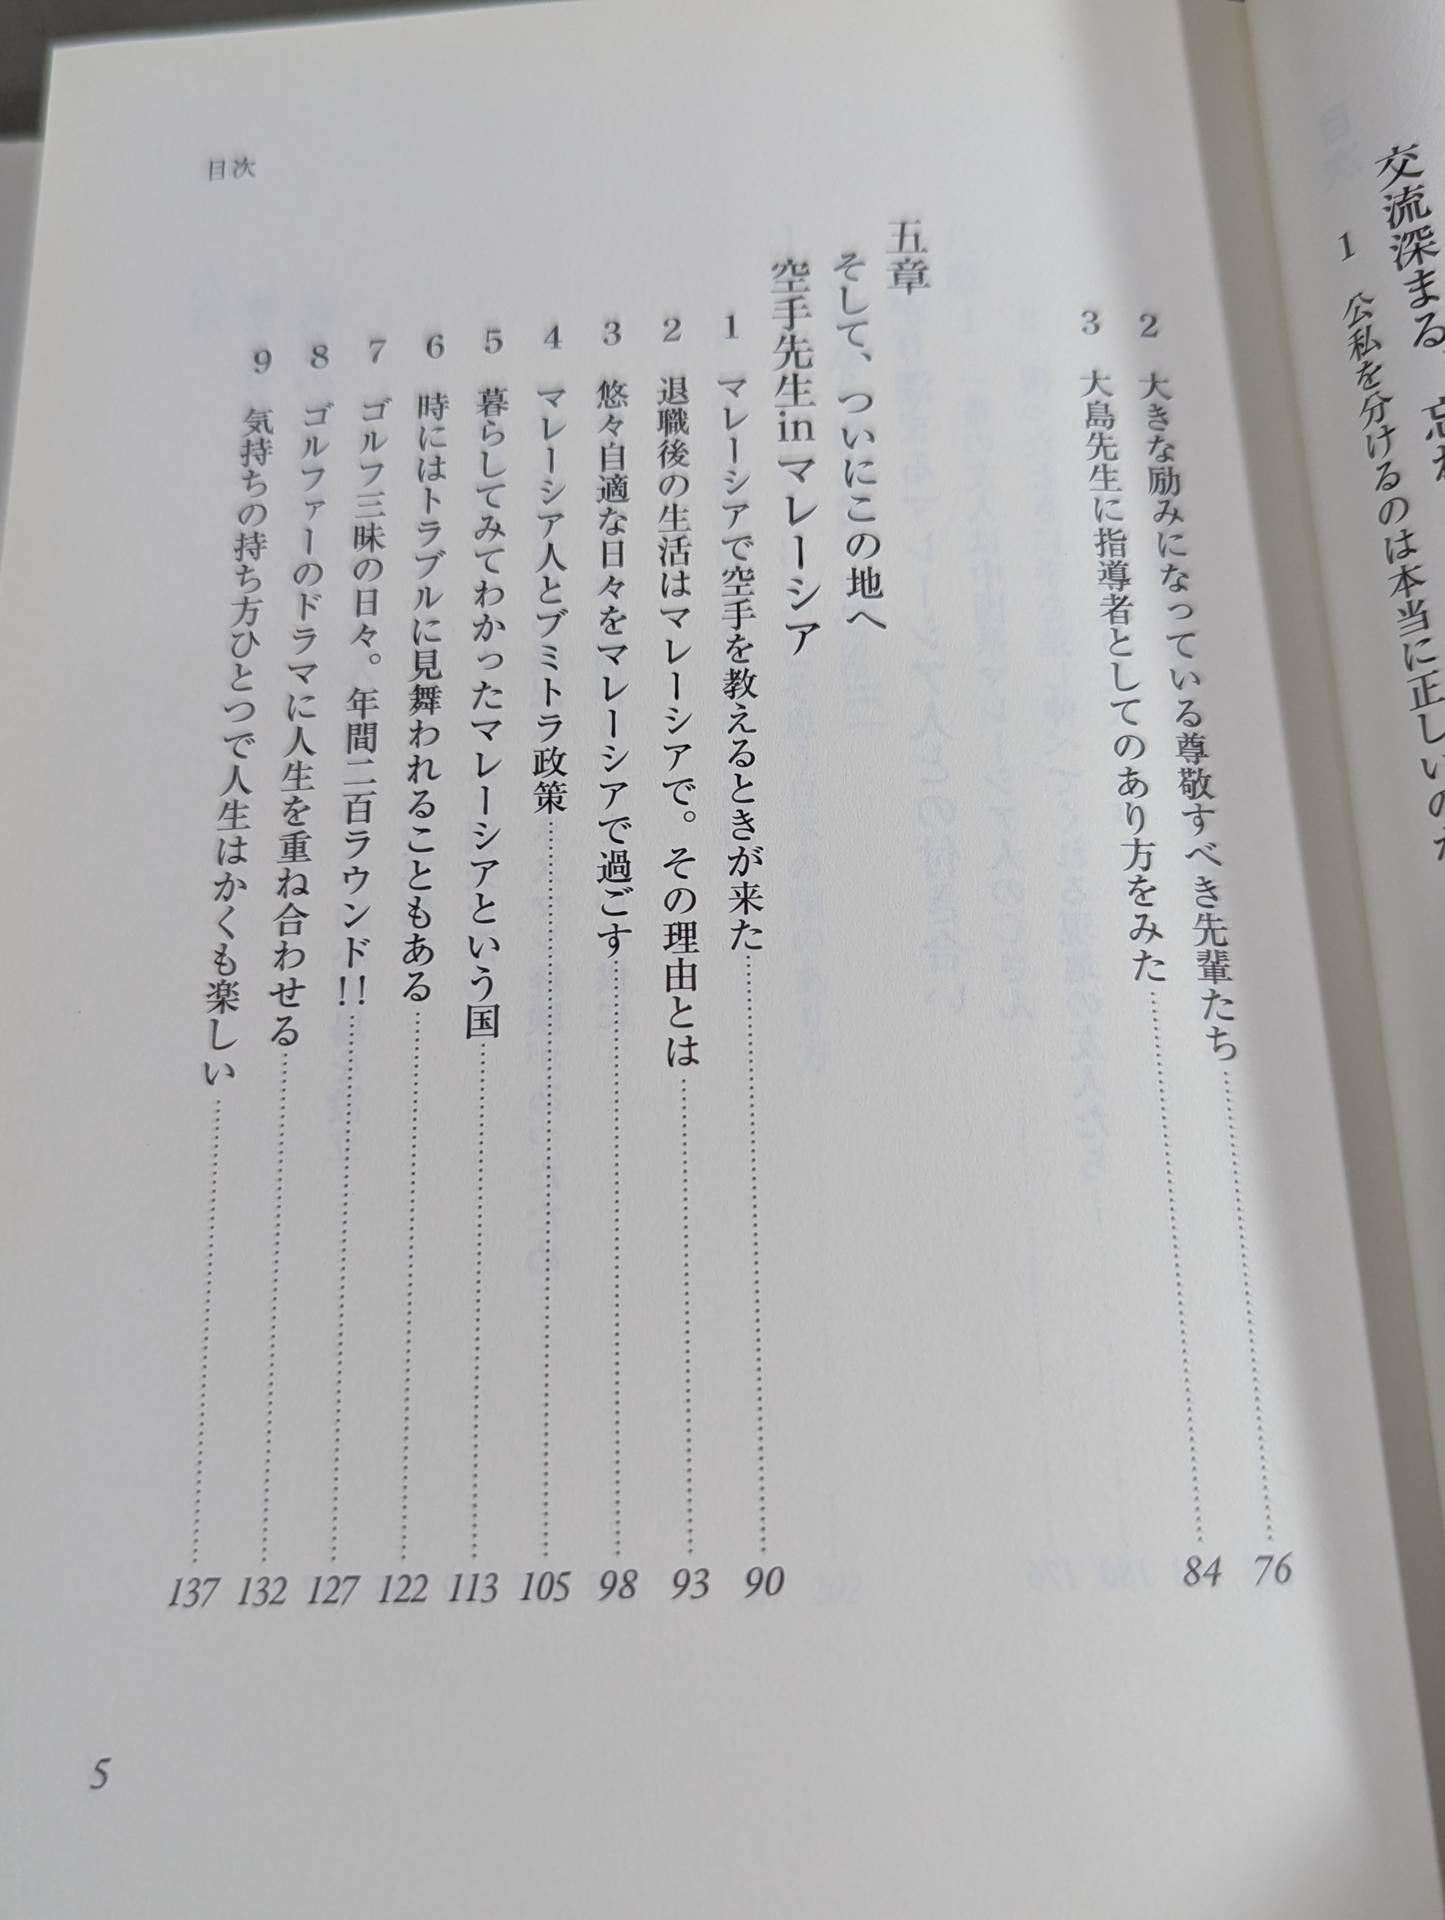 交流深まる
1 公私を分けるのは本当に正しいの
2 大きな励みになっている尊敬すべき先輩たち 76
3 大島先生に指導者としてのあり方をみた 84
五章
そして、ついにこの地へ
空手先生inマレーシア
1 マレーシアで空手を教えるときが来た 90
2 退職後の生活はマレーシアで。その理由とは 93
3 悠々自適な日々をマレーシアで過ごす 98
4 マレーシア人とブミトラ政策 105
5 暮らしてみてわかったマレーシアという国 113
6 時にはトラブルに見舞われることもある 122
7 ゴルフ三昧の日々。年間二百ラウンド!! 127
8 ゴルファーのドラマに人生を重ね合わせる 132
9 気持ちの持ち方ひとつで人生はかくも楽しい 137
目次
5